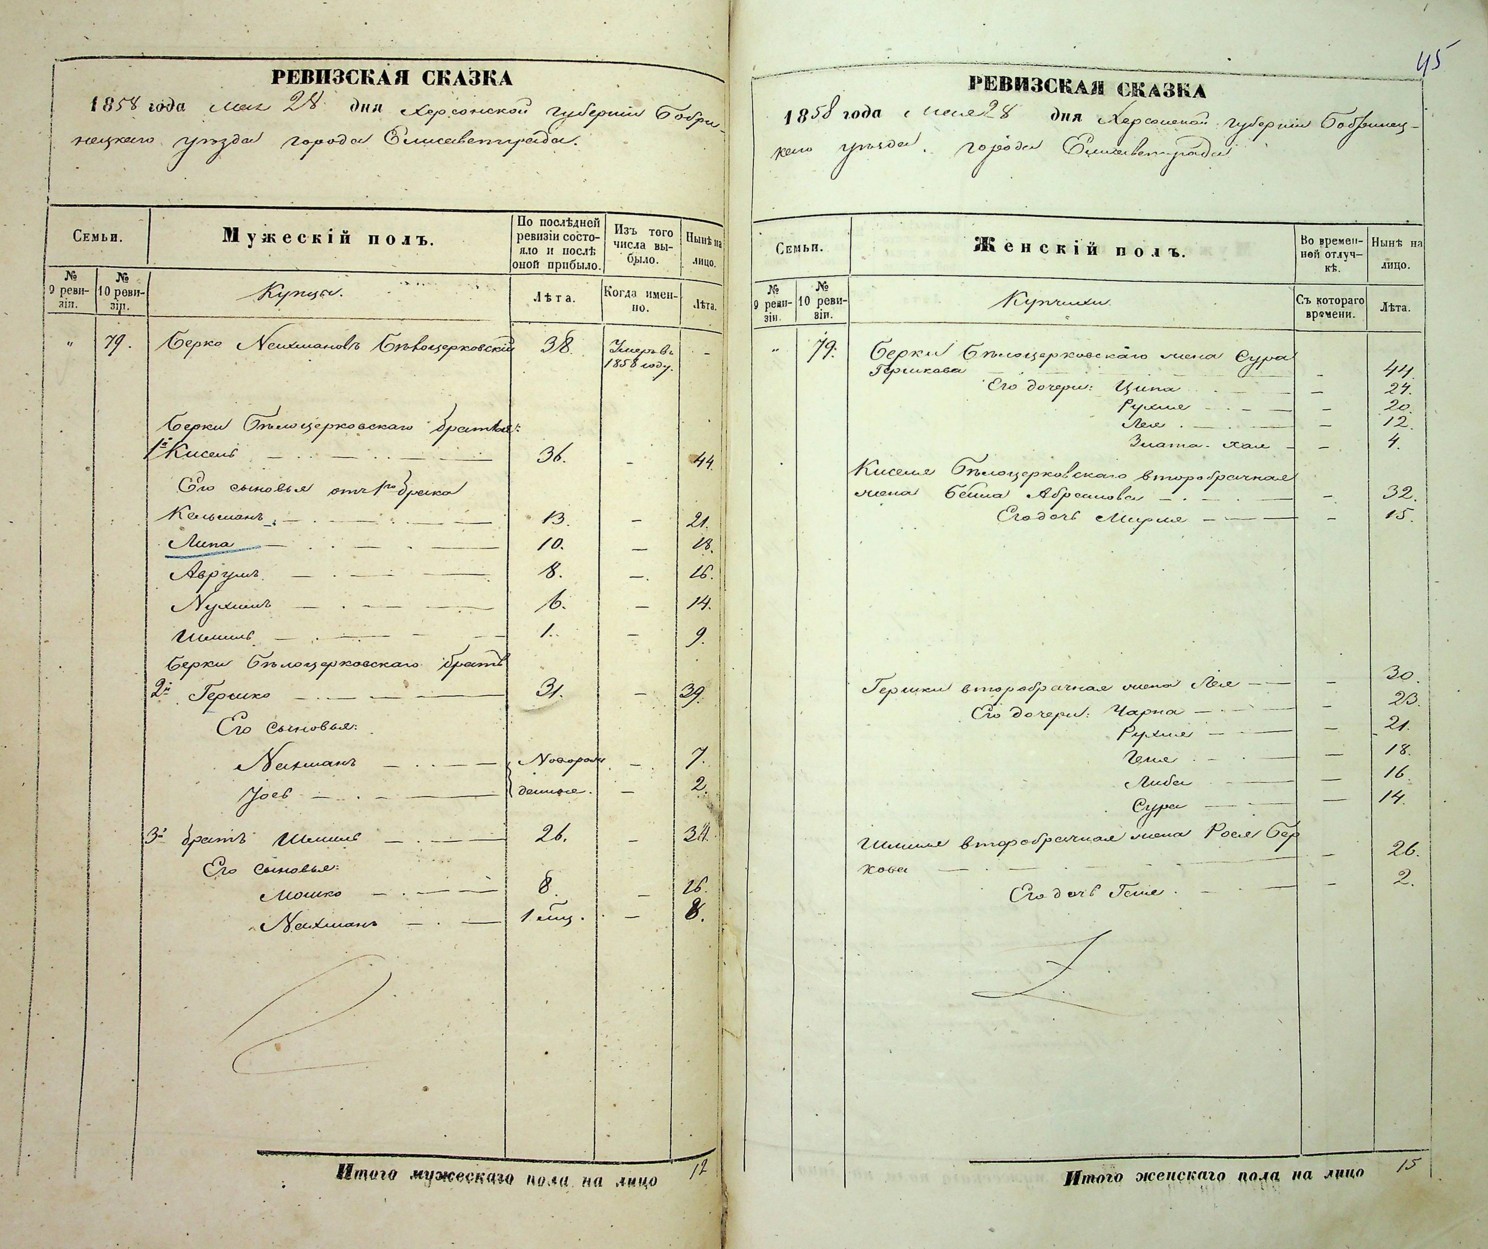 45
РЕВИЗСКАЯ СКАЗКА
1858 года мая 28 дня Херсонской губерніи Бобри-
нецкаго уѣзда города Елисаветграда.
Семьи.
Мужескій полъ.
По послѣдней ревизіи состояло и послѣ оной прибыло.
Изъ того числа выбыло.
Нынѣ на лицо.
№ 9 ревизіи.
№ 10 ревизіи.
Купцы.
Лѣта.
Когда именно.
Лѣта.
" 79. Берко Нахмановъ Бѣлоцерковскій 38 Умеръ въ 1858 году. -
Берки Бѣлоцерковскаго братья:
1й Кисель 36. - 44.
Его сыновья отъ 1го брака
Кельманъ 13. - 21.
Липа 10. - 18.
Аврумъ 8. - 16.
Нухимъ 6. - 14.
Шмиль 1. - 9.
Берки Бѣлоцерковскаго братъ
2й Гершко 31. - 39.
Его сыновья:
Нахманъ Новорож- - 7.
Іосъ денные. - 2.
3й братъ Шмиль 26. - 34.
Его сыновья:
Мошко 8. - 16.
Нахманъ 1 мѣц. - 8.
Итого мужескаго пола на лицо 12
РЕВИЗСКАЯ СКАЗКА
1858 года мая 28 дня Херсонской губерніи Бобринец-
каго уѣзда. города Елисаветграда
Семьи.
Женскій полъ.
Во временной отлучкѣ.
Нынѣ на лицо.
№ 9 ревизіи.
№ 10 ревизіи.
Купчихи
Съ котораго времени.
Лѣта.
" 79. Берки Бѣлоцерковскаго жена Сура
Гершкова - 44.
Его дочери: Ципа - 24.
Рухля - 20.
Лея - 12.
Злата-Хая - 4.
Киселя Бѣлоцерковскаго второбрачная
жена Бейла Абрамова - 32.
Его дочь Мирля - 15.
Гершки второбрачная жена Лея - 30.
Его дочери: Чарна - 23.
Рухля - 21.
Геня - 18.
Либа - 16.
Сура - 14.
Шмиля второбрачная жена Рося Бер
кова - 26.
Его дочь Геня - 2.
Итого женскаго пола на лицо 15